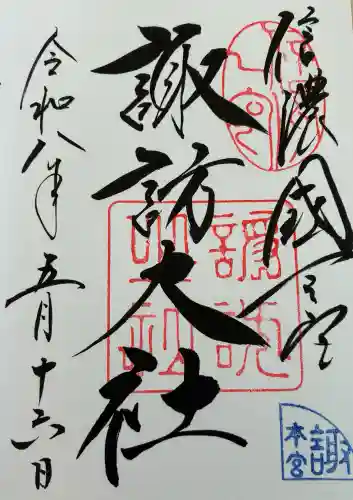 信濃國一之宮
諏訪大社
令和八年五月十六日
本宮
諏